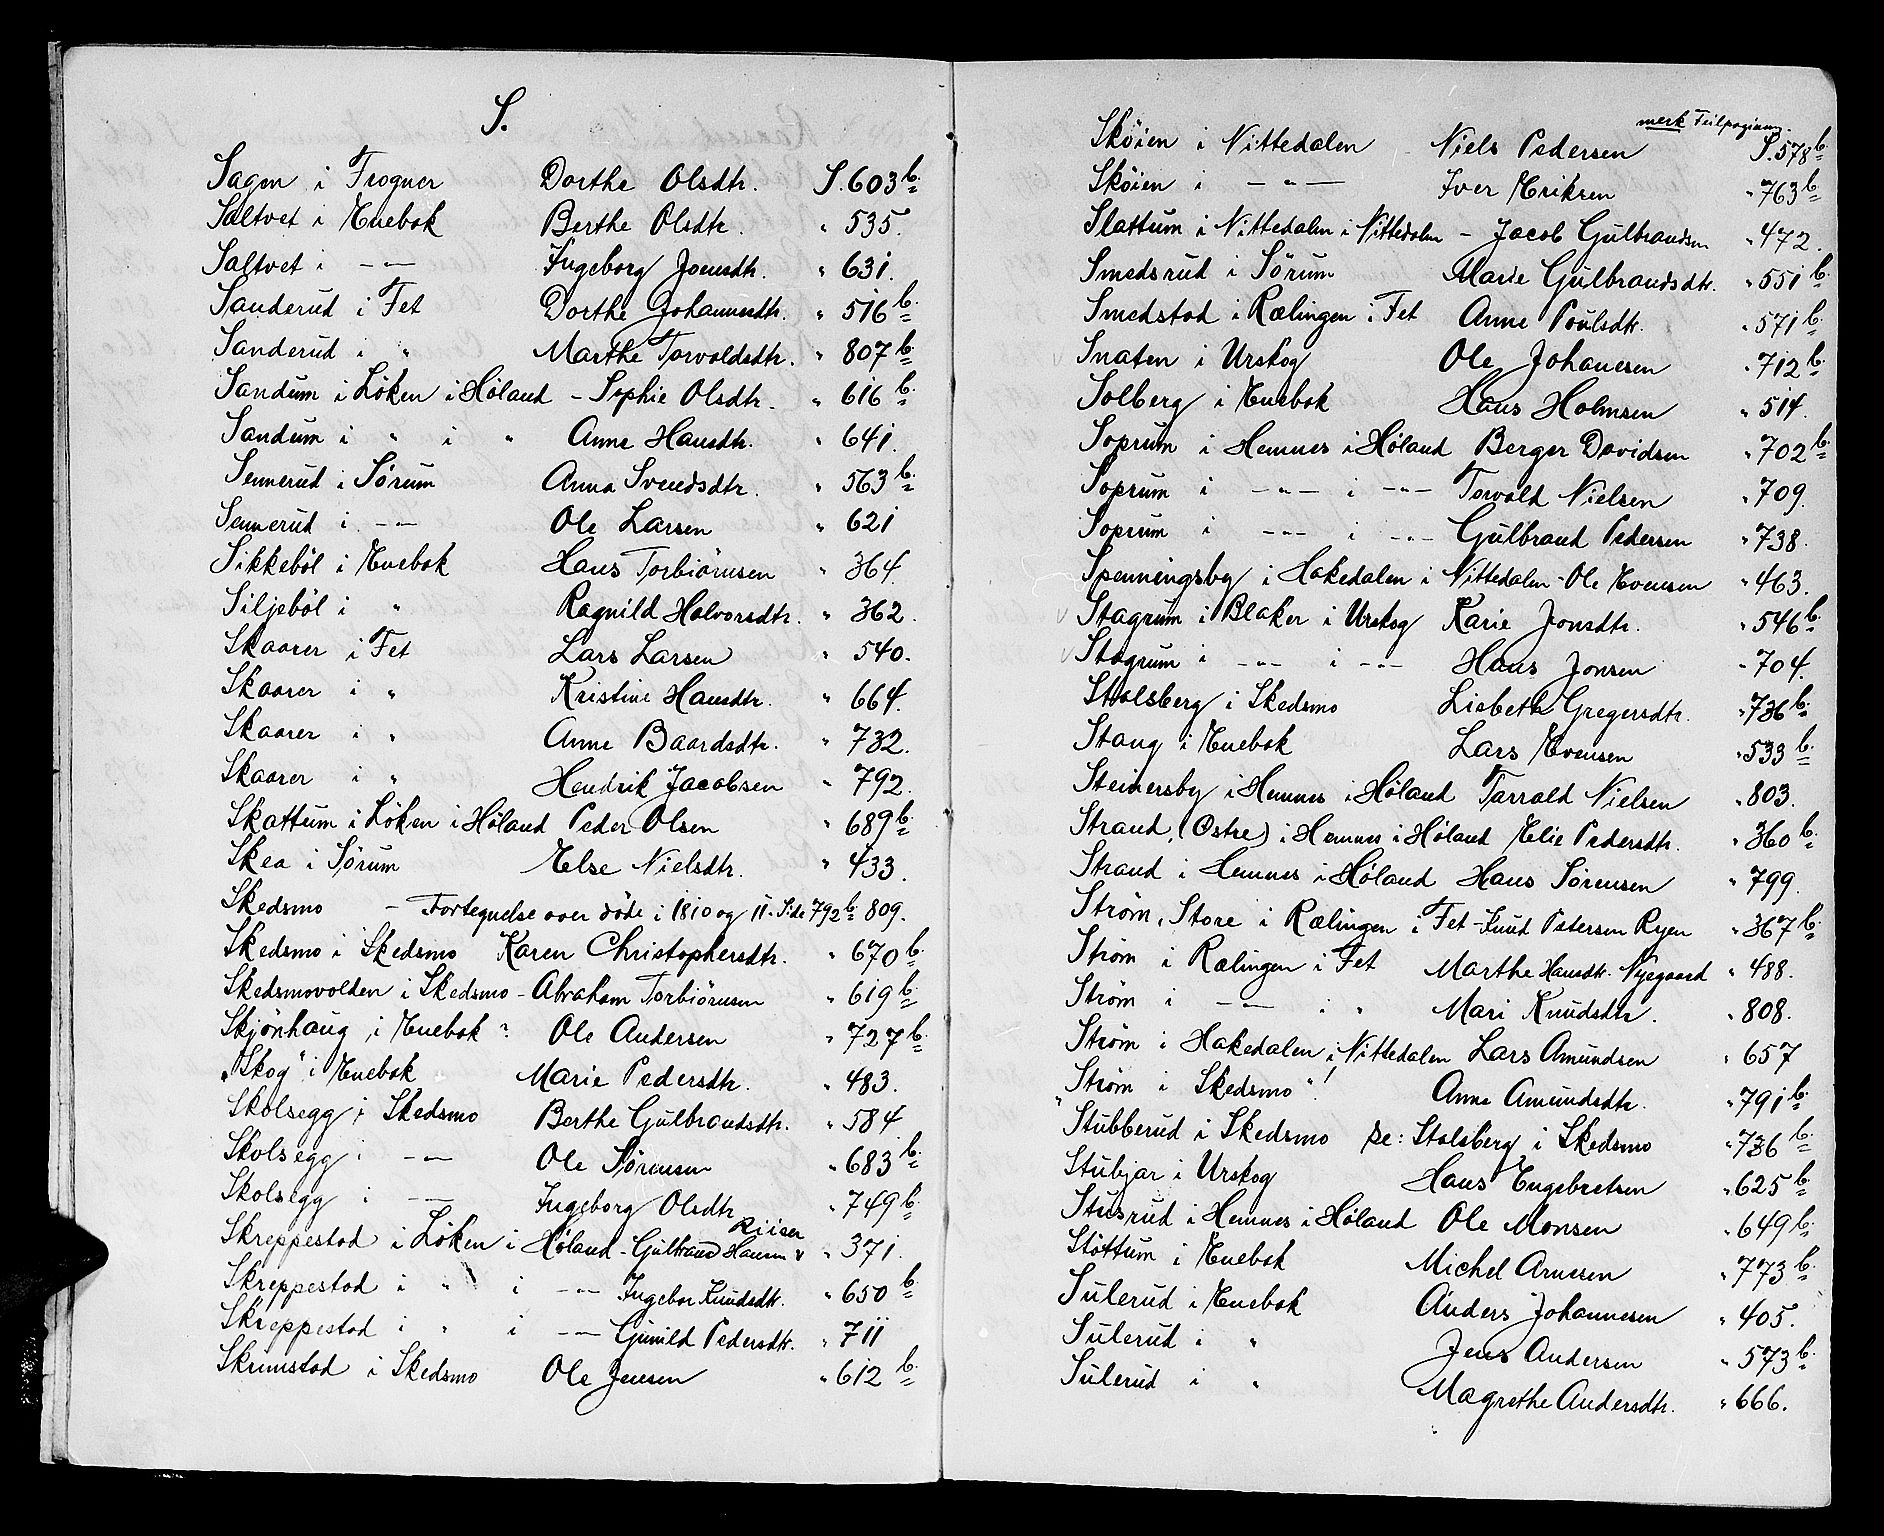 S.
Sagen i Frogner Dorthe Olsdtr. S. 603 b.
Saltvet i Enebak Berthe Olsdtr. " 535.
Saltvet i -"- Ingeborg Joensdtr. " 631.
Sanderud i Fet Dorthe Johannesdtr. " 516 b.
Sanderud i " Marthe Torvaldsdtr. " 807 b.
Sandum i Løken i Høland - Sophie Olsdtr. " 616 b.
Sandum i " i " Anne Hansdtr. " 641.
Sennerud i Sørum Anna Svendsdtr. " 563 b.
Sennerud i -"- Ole Larsen " 621
Sikkeböl i Enebak Hans Torbiörnsen " 364.
Siljeböl i " Ragnild Halvorsdtr. " 362.
Skaarer i Fet Lars Larsen " 540.
Skaarer i " Kristine Hansdtr. " 664.
Skaarer i " Anne Baardsdtr. " 732.
Skaarer i " Hendrik Jacobsen " 792.
Skattum i Løken i Høland Peder Olsen " 689 b.
Skea i Sørum Else Nielsdtr. " 433.
Skedsmo - Fortegnelse over døde i 1810 og 11. Side 792 b. 809.
Skedsmo i Skedsmo Karen Christophersdtr. " 670 b.
Skedsmovolden i Skedsmo - Abraham Torbiörnsen " 619 b.
Skjönhaug i Enebak ? Ole Andersen " 727 b.
"Skog" i Enebak Marie Pedersdtr. " 483.
Skolsegg i Skedsmo Berthe Gulbrandsdtr. " 584
Skolsegg i -"- Ole Sørensen " 683 b.
Skolsegg i -"- Ingeborg Olsdtr. " 749 b.
Riiser
Skreppestad i Løken i Høland - Gulbrand Hansen " 371.
Skreppestad i " i -"- Ingebor Knudsdtr. " 650 b.
Skreppestad i " i -"- Gunild Pedersdtr. " 711
Skrimstad i Skedsmo Ole Jensen " 612 b.
merk Feilpaginer.
Sköien i Nittedalen Niels Pedersen S. 578 b.
Sköien i -"- Iver Eriksen " 763 b.
Slattum i Nittedalen i Nittedalen - Jacob Gulbrandsen " 472.
Smedsrud i Sörum Marie Gulbrandsdtr. " 551 b.
Smedstad i Rælingen i Fet Anne Poulsdtr. " 571 b.
Snaten i Urskog Ole Johanesen " 712 b.
Solberg i Enebak Hans Holmsen " 514.
Soprum i Hemnes i Høland Berger Davidsen " 702 b.
Soprum i -"- i -"- Torvald Nielsen " 709.
Soprum i -"- i -"- Gulbrand Pedersen " 738.
Spenningsby i Hakedalen i Nittedalen - Ole Evensen " 463.
Stagrum i Blaker i Urskog Karie Jonsdtr. " 546 b.
Stagrum i -"- i -"- Hans Jonsen " 704.
Stalsberg i Skedsmo Lisbeth Gregersdtr. " 736 b.
Stang i Enebak Lars Evensen " 533 b.
Steinersby i Hemnes i Høland Tarrald Nielsen " 803.
Strand, (Østre) i Hemnes i Høland Elie Pedersdtr. " 360 b.
Strand i Hemnes i Høland Hans Sørensen " 799.
Strøm, Store i Rælingen i Fet - Knud Petersen Ryen " 367 b.
Strøm i Rælingen i Fet Marthe Hansdtr. Nyegaard " 488.
Strøm i -"- i " Mari Knudsdtr. " 808.
Strøm i Hakedalen i Nittedalen Lars Amundsen " 657
"Strøm i Skedsmo" ! Anne Amundsdtr. " 791 b.
Stubberud i Skedsmo se: Stalsberg i Skedsmo " 736 b.
Stubjar i Urskog Hans Engebretsen " 625 b.
Stusrud i Hemnes i Høland Ole Monsen " 649 b.
Støttum i Enebak Michel Arnesen " 773 b.
Sulerud i Enebak Anders Johannesen " 405.
Sulerud i " Jens Andersen " 573 b.
Sulerud i " Magrethe Andersdtr. " 666.